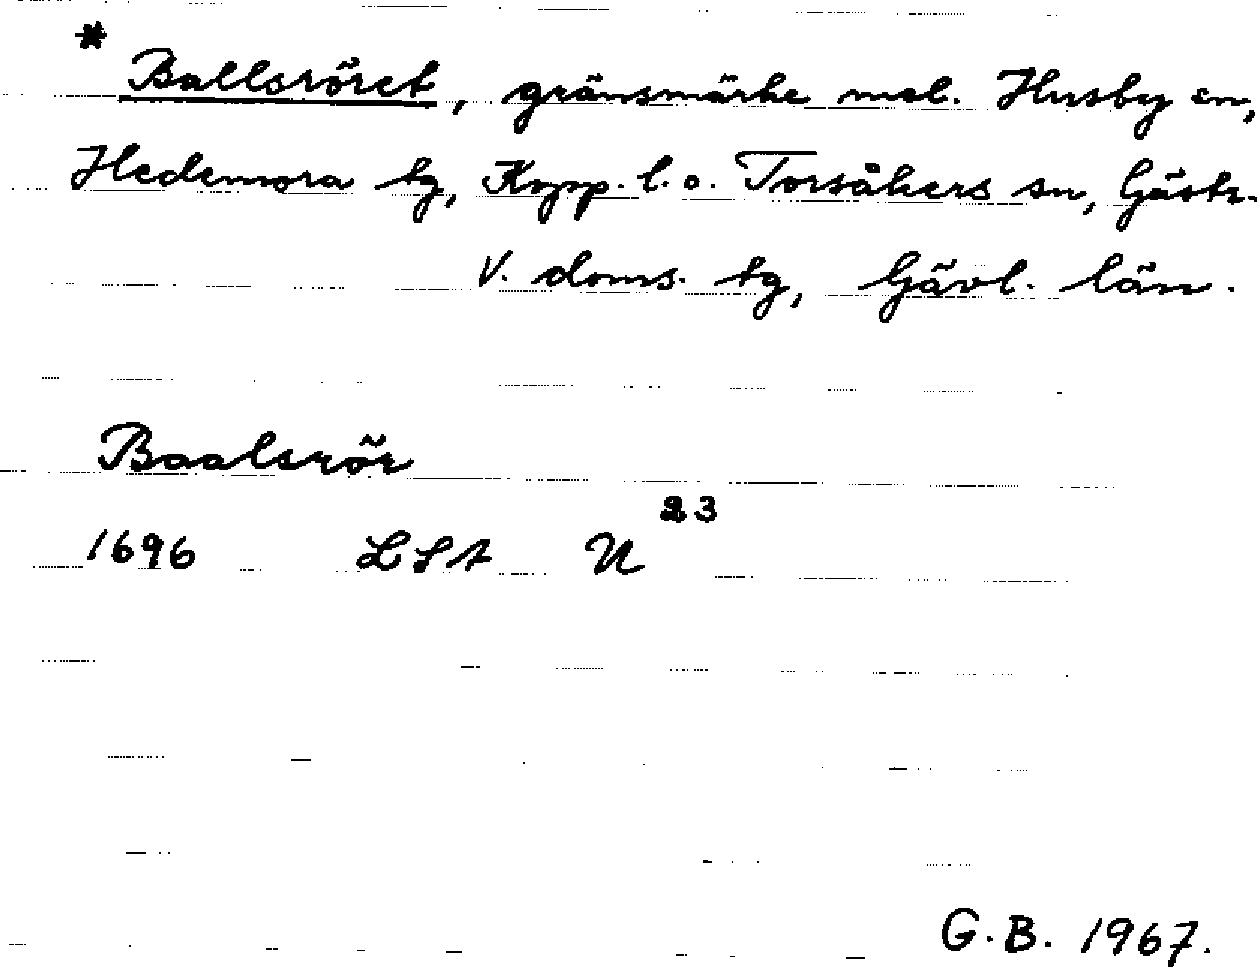 *
Ballsröret, gränsmärke mel. Husby sn,
Hedemora tg, Kopp. l. o. Torsåkers sn, Gästr.
V. doms. tg, Gävl. län.
Baalsrör
1696 LSt U 23
G.B. 1967.